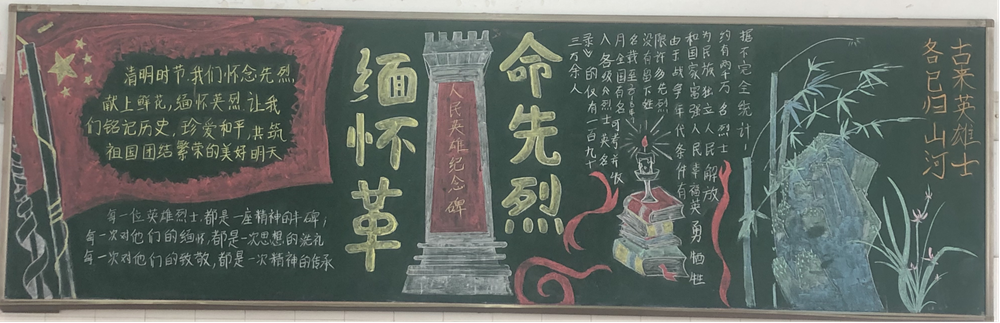 清明时节,我们怀念先烈,
献上鲜花,缅怀英烈,让我
们铭记历史,珍爱和平,共筑
祖国团结繁荣的美好明天
每一位英雄烈士,都是一座精神的丰碑;
每一次对他们的缅怀,都是一次思想的洗礼
每一次对他们的致敬,都是一次精神的传承
缅怀革
命先烈
人民英雄纪念碑
据不完全统计
约有两千万名烈士
为民族独立人民解放
和国家富强人民幸福英勇牺牲
由于战争年代条件有
限许多先烈
没有留下姓
名截至
月全国有名可考并收
入各级烈士英名
录》的仅有一百九十
三万余人
古来英雄士
各已归山河